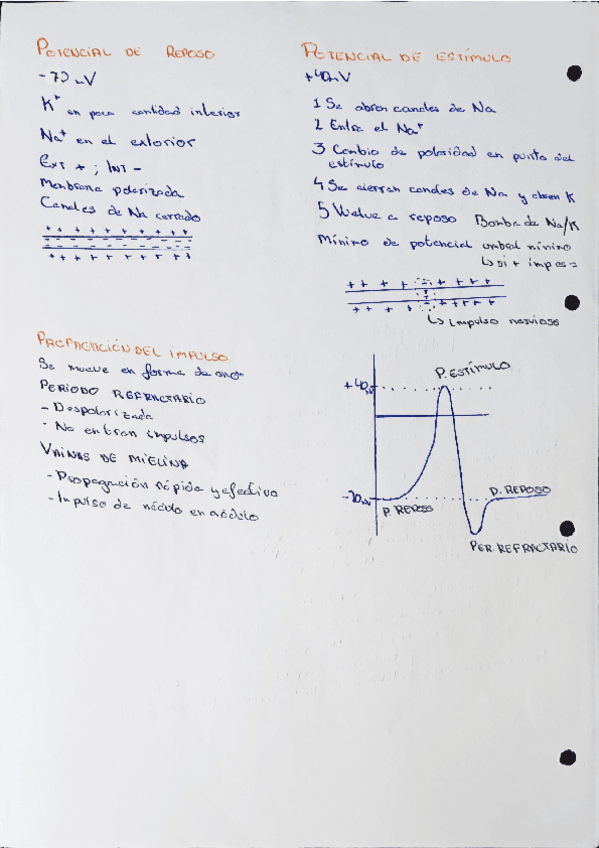 POTENCIAL DE REPOSO
-70mV
K⁺ en poca cantidad interior
Na⁺ en el exterior
EXT + ; INT -
Membrana polarizada
Canales de Na cerrado
+ + + + + + + + + +
+ + + + + + + + + +
POTENCIAL DE ESTÍMULO
+40mV
1 Se abren canales de Na
2 Entra el Na⁺
3 Cambio de polaridad en punto del
estímulo
4 Se cierran canales de Na y abren K
5 Vuelve a reposo Bomba de Na/K
Mínimo de potencial umbral mínimo
↳ si +
↳ Impulso nervioso
PROPAGACIÓN DEL IMPULSO
Se mueve en forma de
PERIODO REFRACTARIO
- Despolarizada
- No entran impulsos
VAINAS DE MIELINA
- Propagación rápida y efectiva
- Impulso de nódulo en nódulo
P. ESTÍMULO
+40
-70
P. REPOSO
P. REPOSO
PER. REFRACTARIO